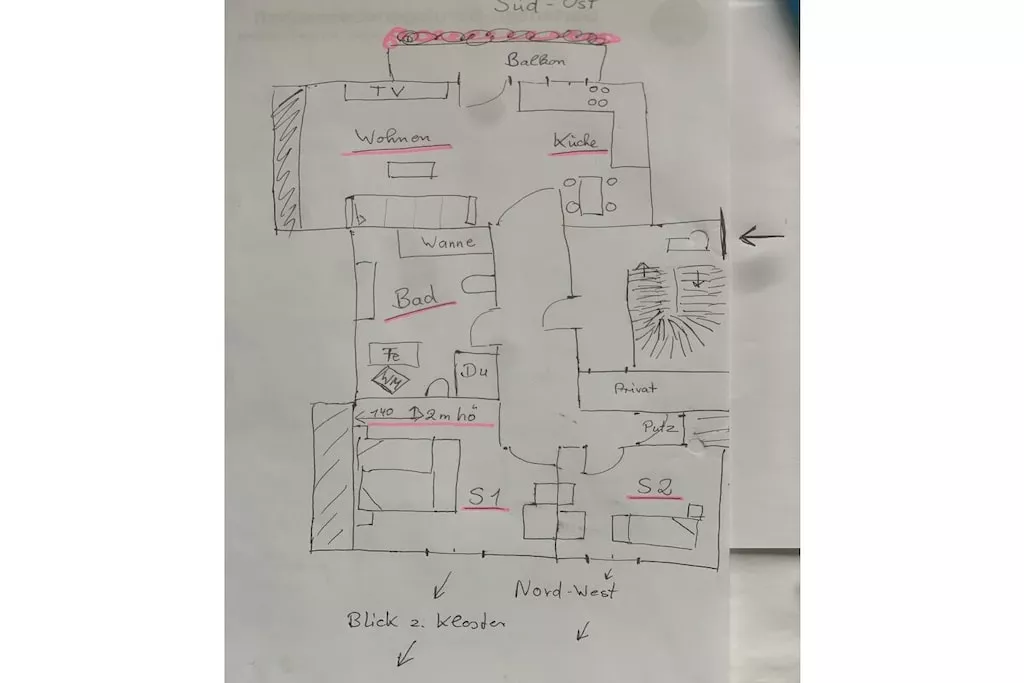 Süd-Ost
Balkon
TV
Wohnen
Küche
Wanne
Bad
WM
Du
Privat
140 D2m hö
Putz
S1
S2
Nord-West
Blick z. Kloster